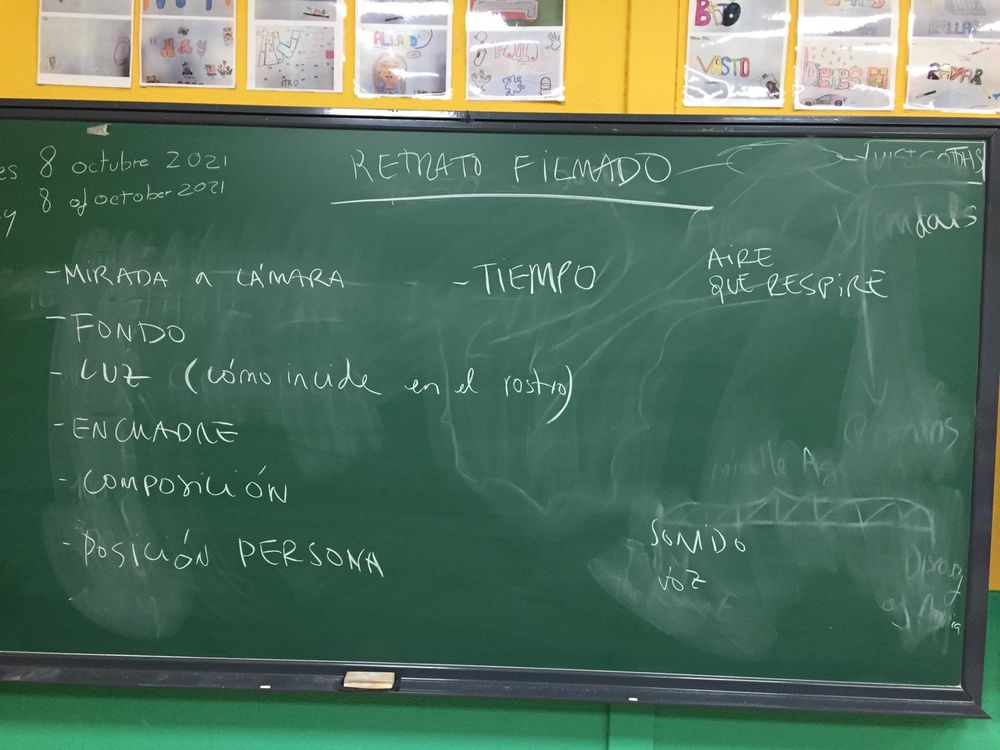 BTO
VASTO
es 8 octubre 2021
8 of october 2021
y
RETRATO FILMADO
VISIGOTHS
Vandals
- MIRADA A CÁMARA
- FONDO
- LUZ (cómo incide en el rostro)
- ENCUADRE
- COMPOSICIÓN
- POSICIÓN PERSONA
- TIEMPO
AIRE
QUE RESPIRE
Romans
middle Ag
SONIDO
VOZ